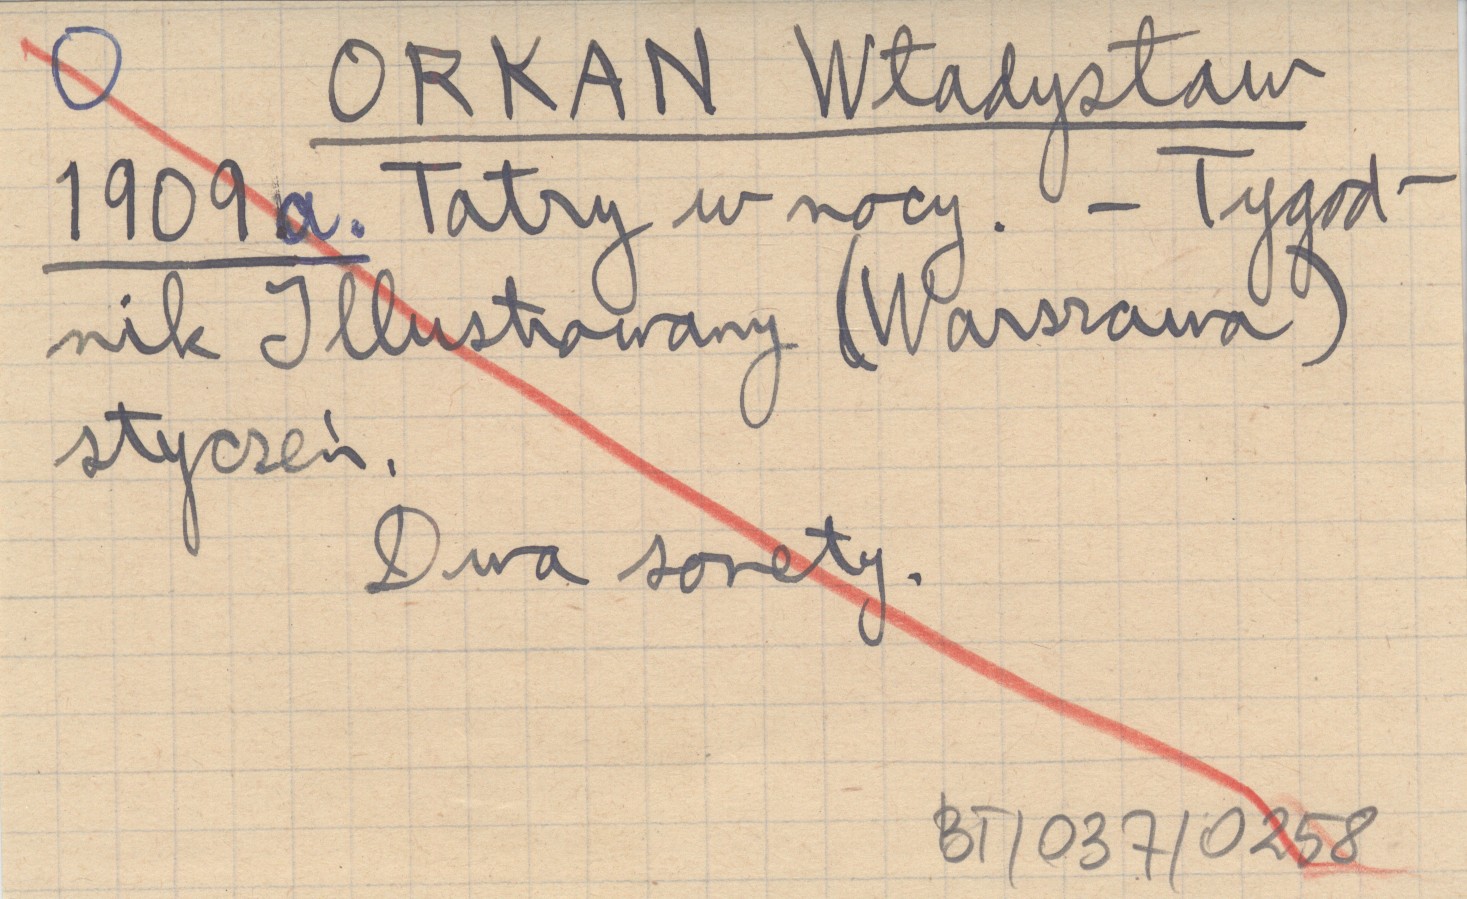 O ORKAN Władysław
1909a. Tatry w nocy. – Tygod-
nik Illustrowany (Warszawa)
styczeń.
Dwa sonety.
BT/037/0258